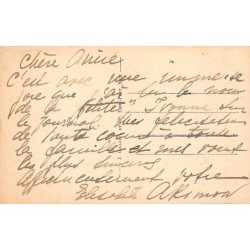 Chère Amie
C'est avec une immense
joie que j'ai lu le nom
de la petite Yvonne sur
le Journal. Mes félicitations
de tout coeur à toute
la famille et mes voeux
les plus sincères
Affectueusement votre
Elisabeth